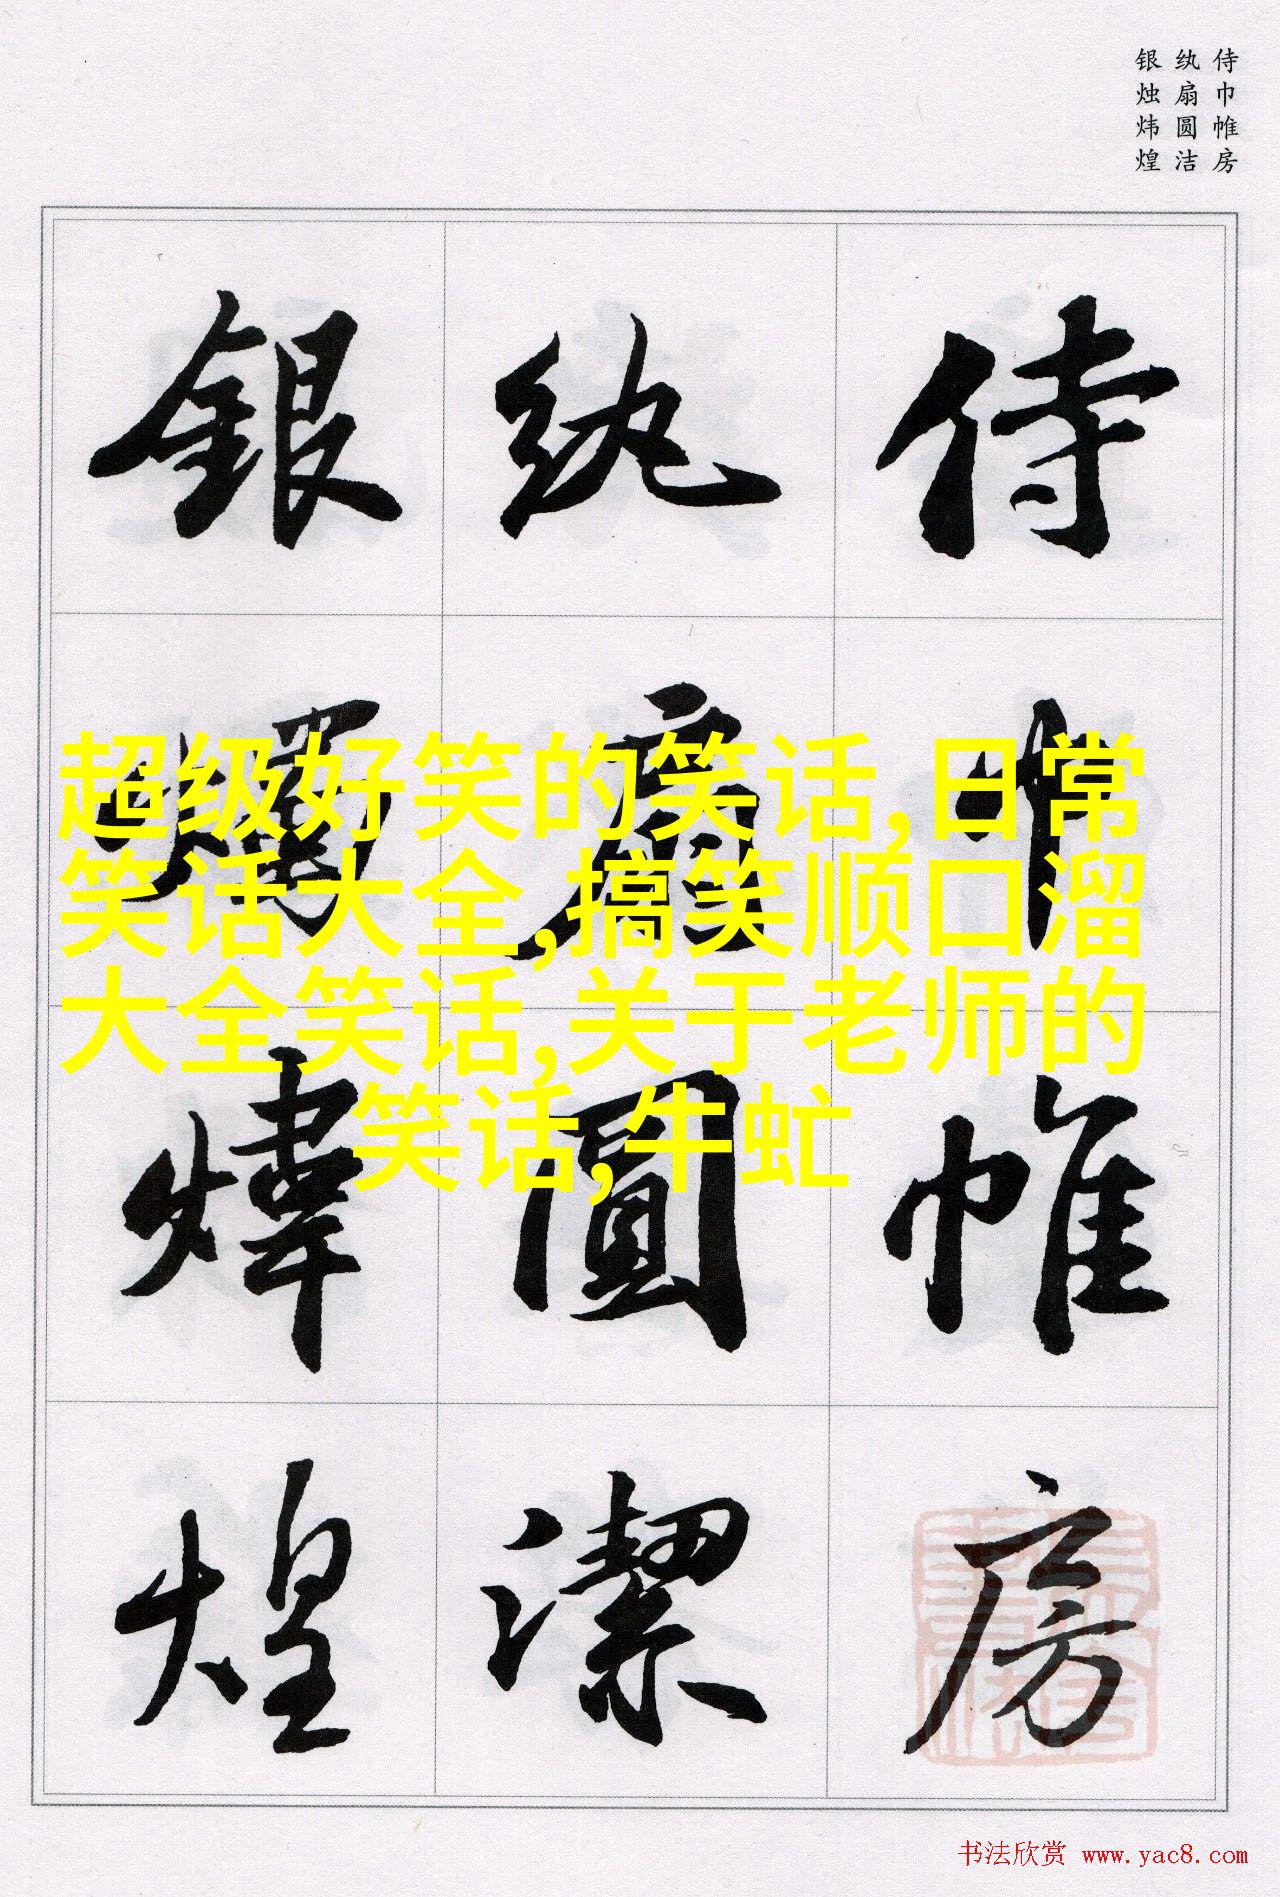 侍巾帷房
纨扇圆洁
银烛炜煌
侍巾帷房
紈扇圓潔
銀燭煒煌
超级好笑的笑话,日常
笑话大全,搞笑顺口溜
大全笑话,关于老师的
笑话,牛虻
书法欣赏 www.yac8.com